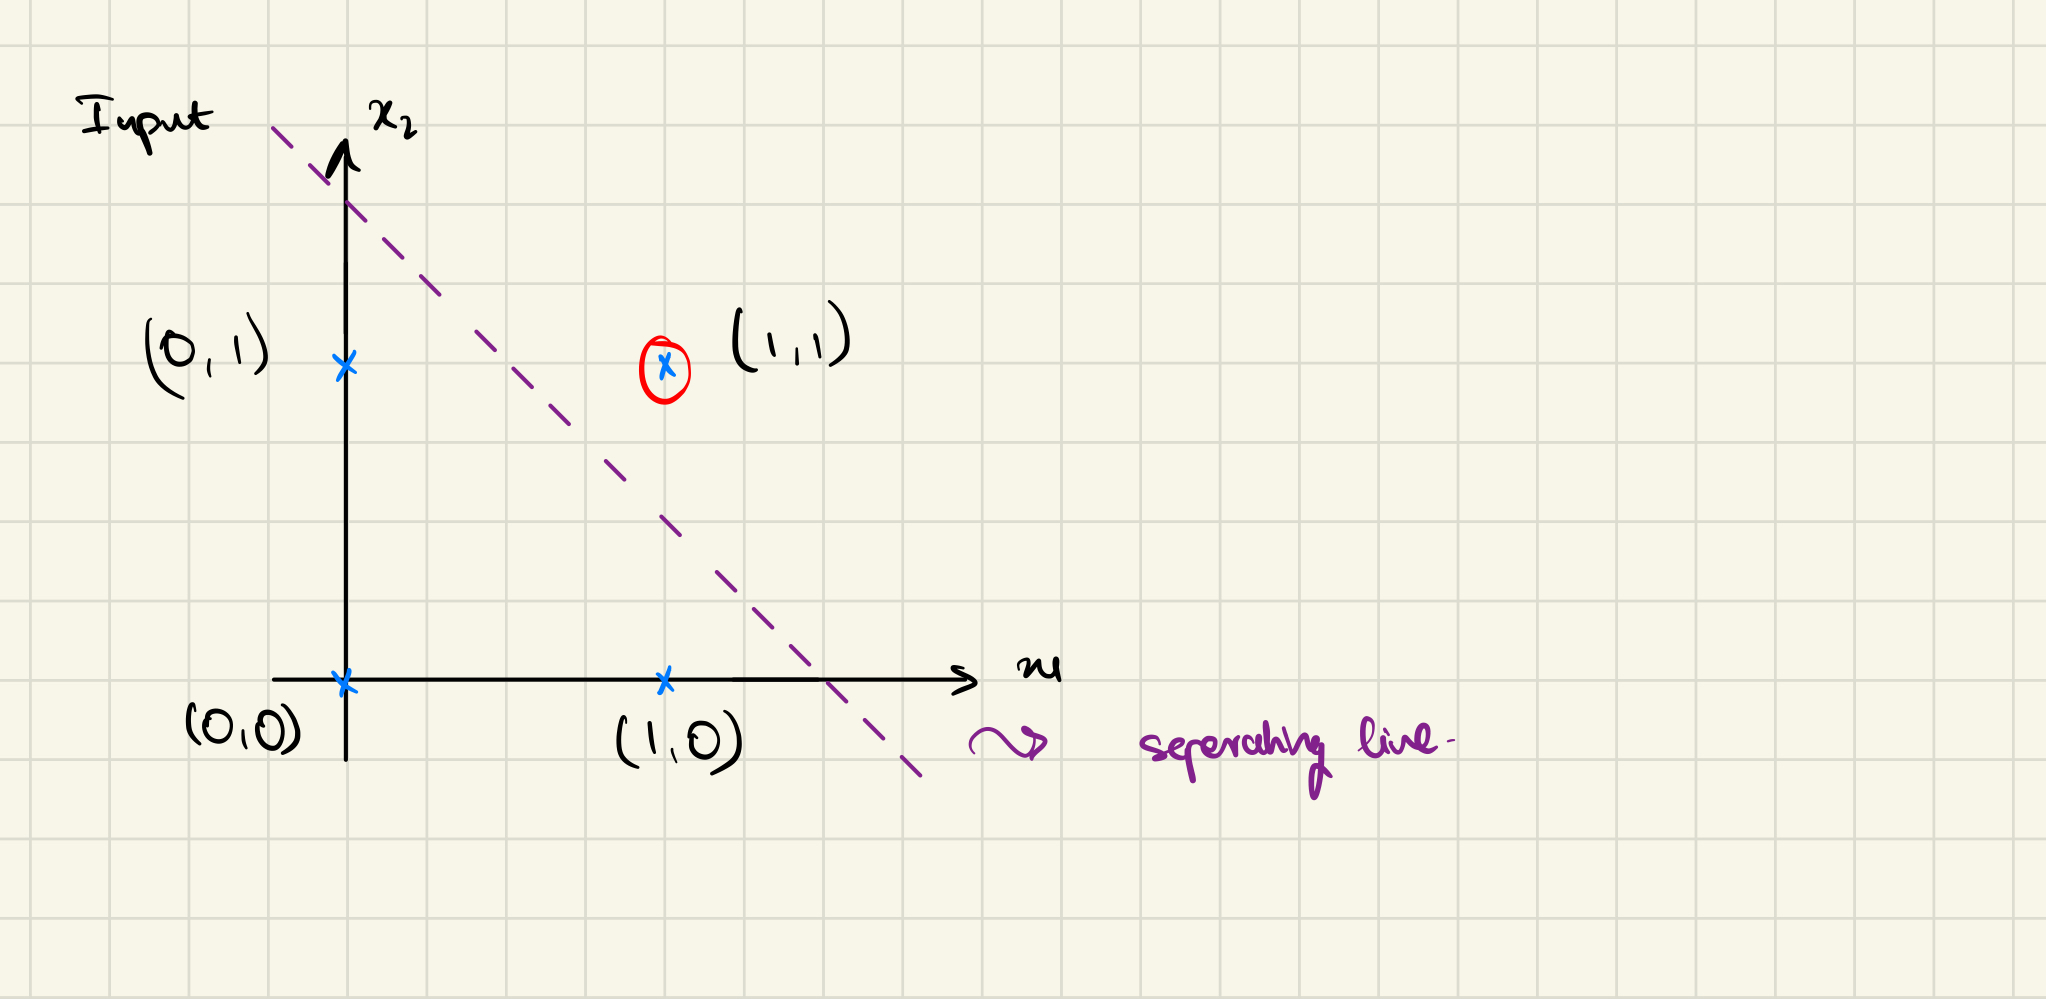 Input
x₂
(0,1)
(1,1)
x₁
(0,0)
(1,0)
seperating line.